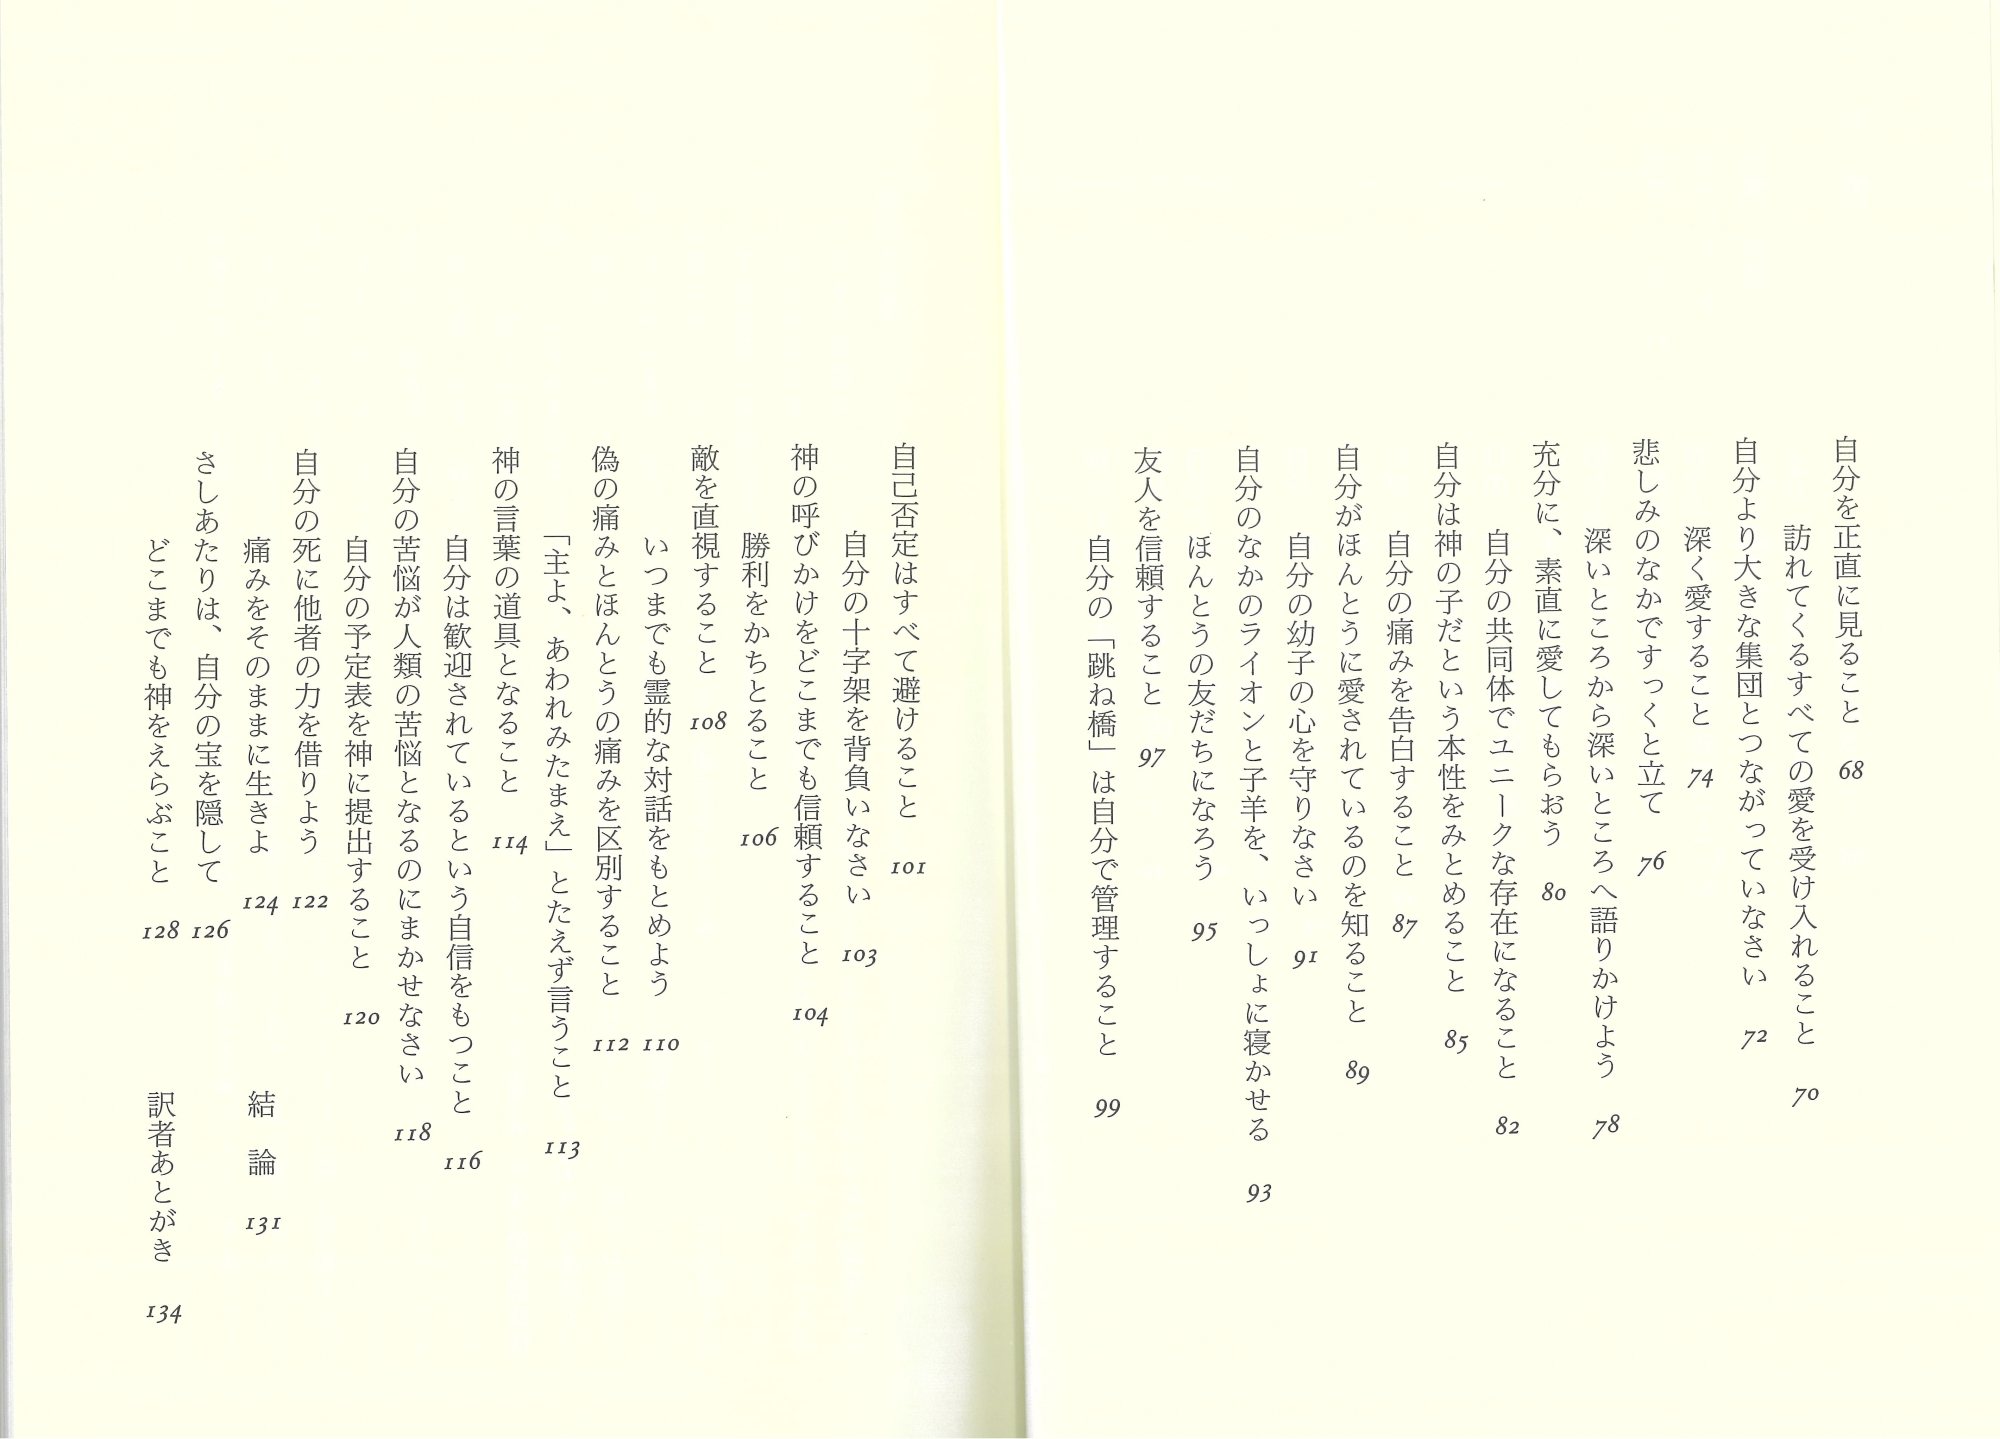 自分を正直に見ること 68
訪れてくるすべての愛を受け入れること 70
自分より大きな集団とつながっていなさい 72
深く愛すること 74
悲しみのなかですっくと立て 76
深いところから深いところへ語りかけよう 78
充分に、素直に愛してもらおう 80
自分の共同体でユニークな存在になること 82
自分は神の子だという本性をみとめること 85
自分の痛みを告白すること 87
自分がほんとうに愛されているのを知ること 89
自分の幼子の心を守りなさい 91
自分のなかのライオンと子羊を、いっしょに寝かせる 93
ほんとうの友だちになろう 95
友人を信頼すること 97
自分の「跳ね橋」は自分で管理すること 99
自己否定はすべて避けること 101
自分の十字架を背負いなさい 103
神の呼びかけをどこまでも信頼すること 104
勝利をかちとること 106
敵を直視すること 108
いつまでも霊的な対話をもとめよう 110
偽の痛みとほんとうの痛みを区別すること 112
「主よ、あわれみたまえ」とたえず言うこと 113
神の言葉の道具となること 114
自分は歓迎されているという自信をもつこと 116
自分の苦悩が人類の苦悩となるのにまかせなさい 118
自分の予定表を神に提出すること 120
自分の死に他者の力を借りよう 122
痛みをそのままに生きよ 124
さしあたりは、自分の宝を隠して 126
どこまでも神をえらぶこと 128
結論 131
訳者あとがき 134